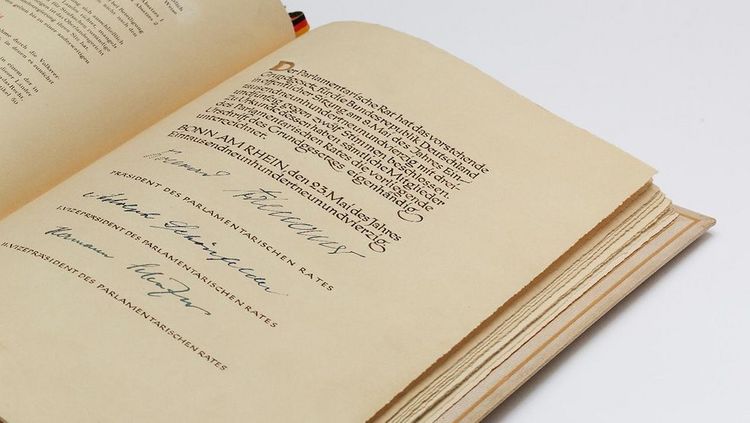 Absatz 1
schließlich
Oberlandesgericht
ihren Sitz hat.
durch die Volksver-
in denen es zunächst
in einem der in
dieser Länder
Der Parlamentarische Rat hat das vorstehende
Grundgesetz für die Bundesrepublik Deutschland
in öffentlicher Sitzung am 8. Mai des Jahres Ein-
tausendneunhundertneunundvierzig mit drei-
undfünfzig gegen zwölf Stimmen beschlossen.
Zu Urkunde dessen haben sämtliche Mitglieder
des Parlamentarischen Rates die vorliegende
Urschrift des Grundgesetzes eigenhändig
unterzeichnet.
BONN AM RHEIN, den 23. Mai des Jahres
Eintausendneunhundertneunundvierzig
Konrad Adenauer
PRÄSIDENT DES PARLAMENTARISCHEN RATES
Adolph Schönfelder
I. VIZEPRÄSIDENT DES PARLAMENTARISCHEN RATES
Hermann Schäfer
II. VIZEPRÄSIDENT DES PARLAMENTARISCHEN RATES